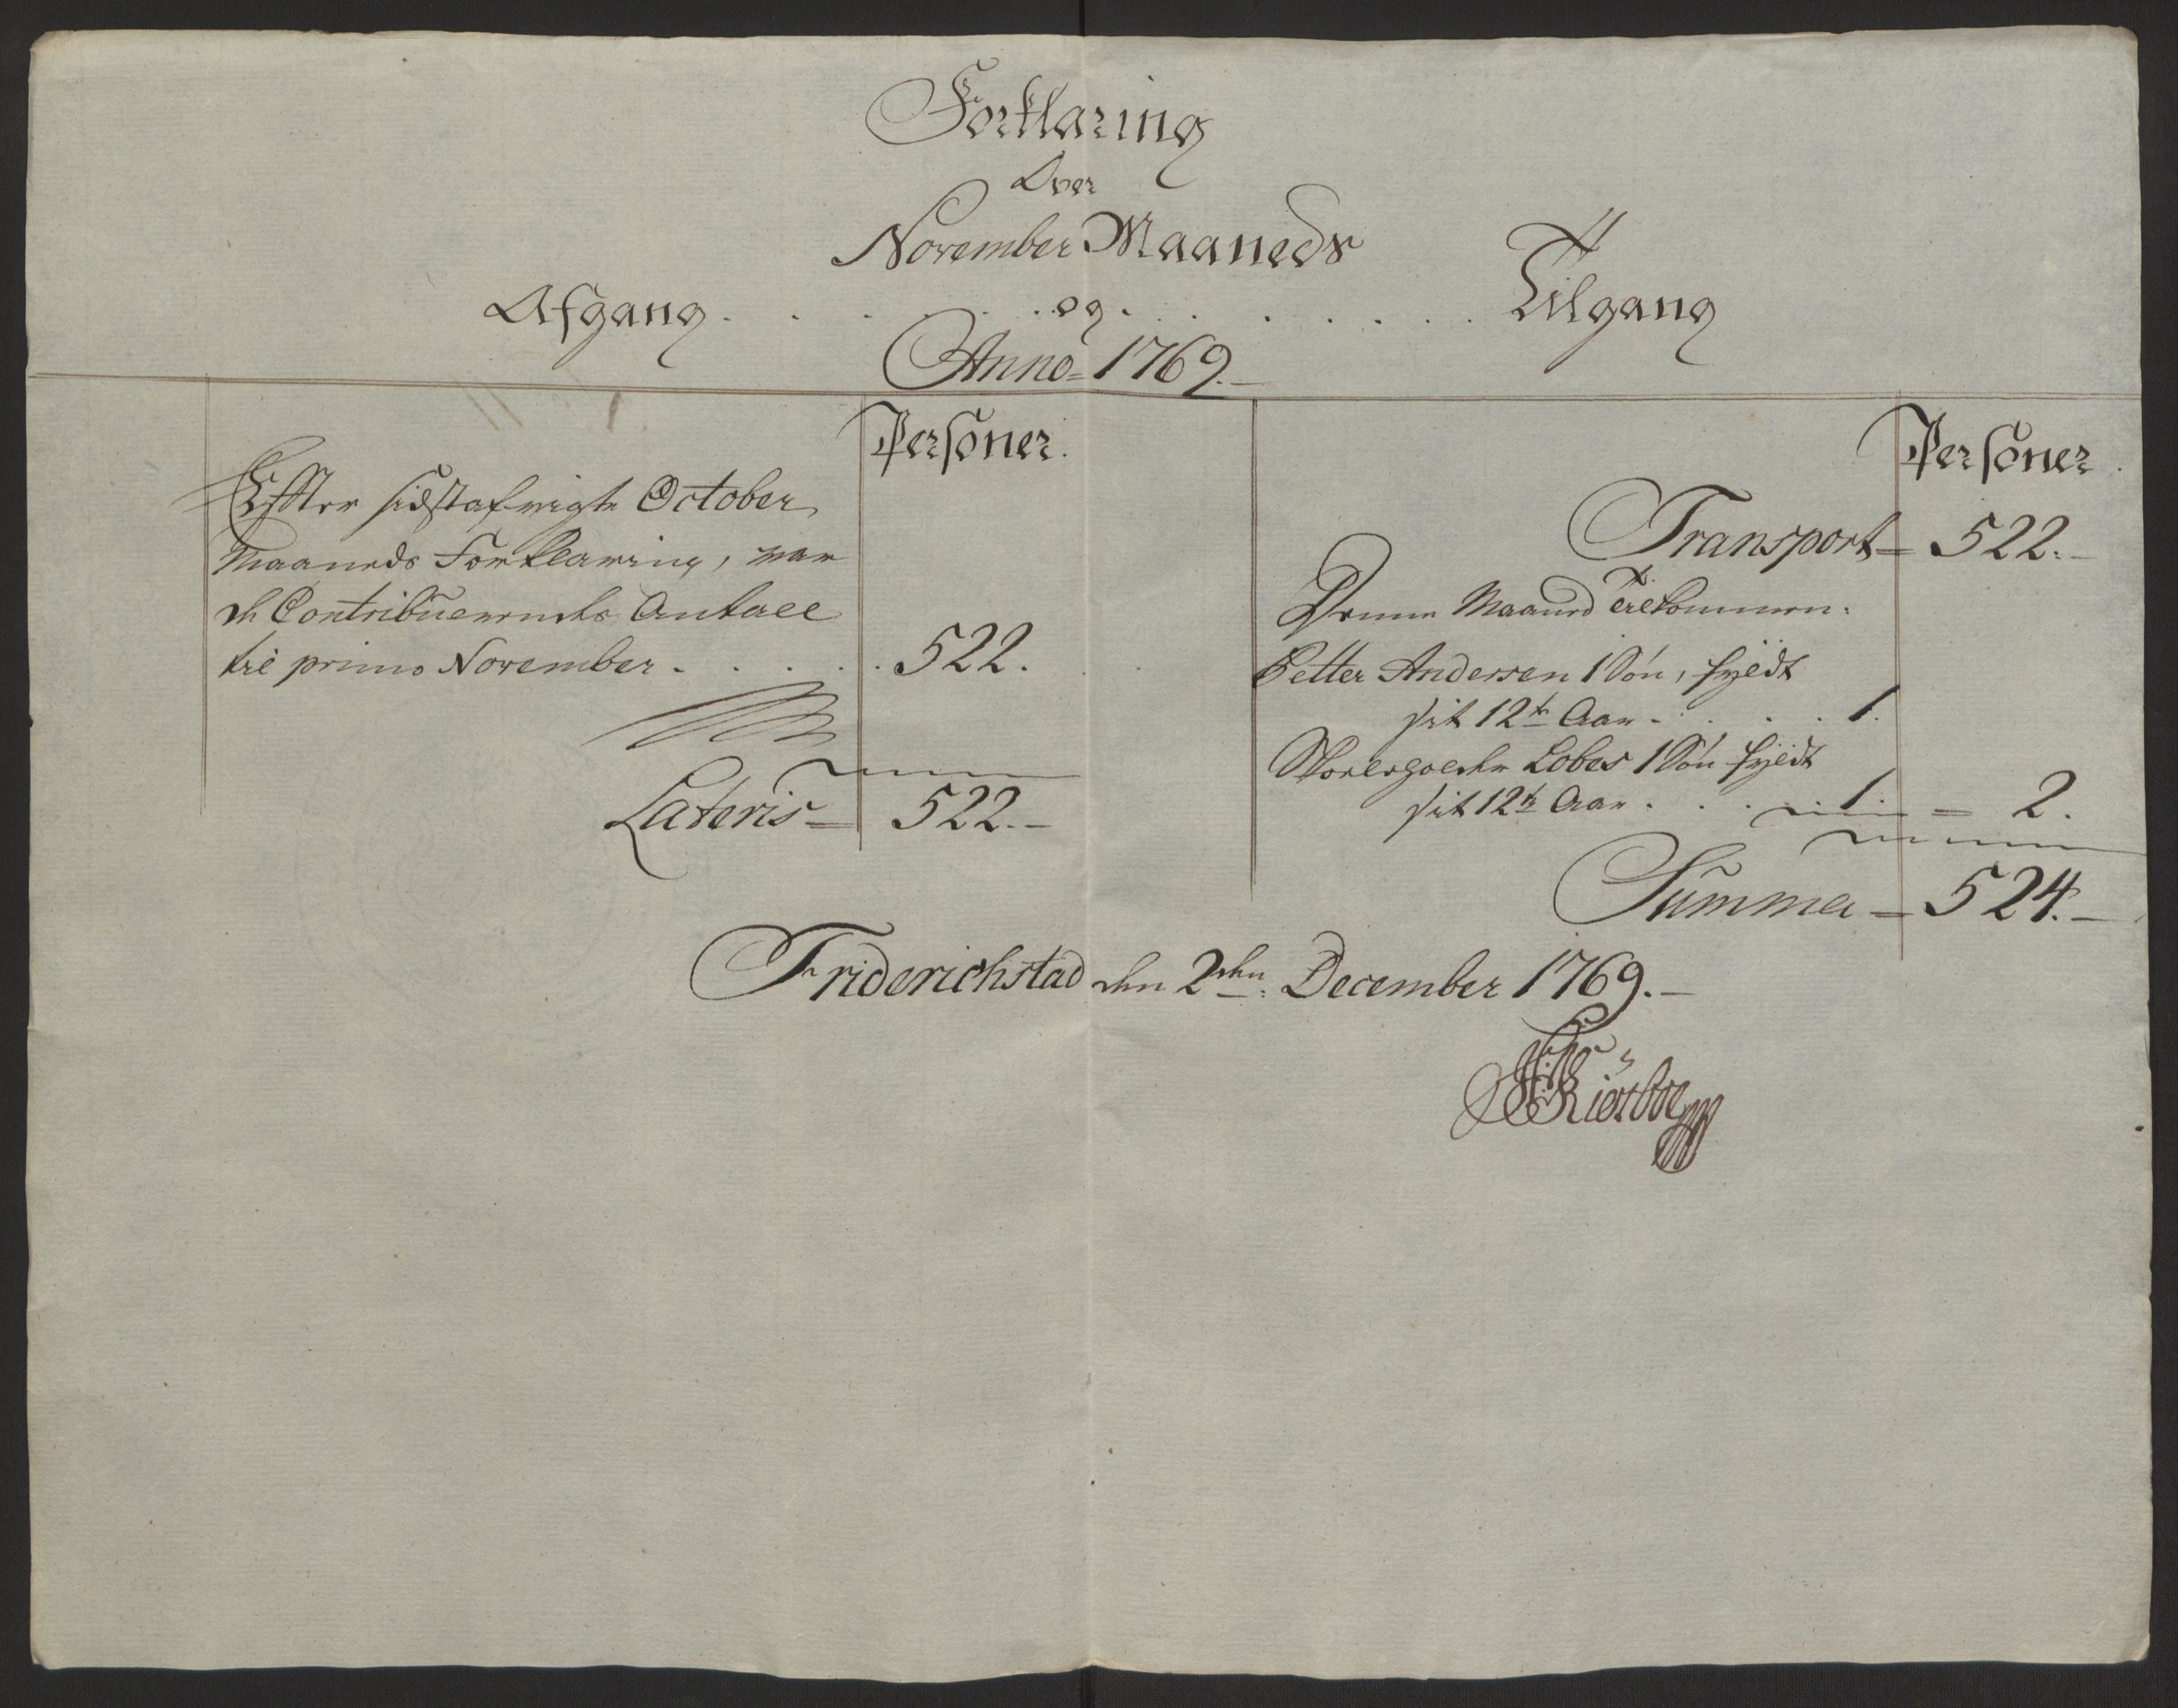 Forklaring
Over
November Maaneds
Afgang . . . . . . og . . . . . . . Tilgang
Anno 1769.
Personer.
Effter sidstafvigte October
Maaneds Forklaring, var
de Contribuerendes Antall
til primo November . . . . . 522.
Lateris = 522.
Personer.
Transport = 522.
Denne Maaned Tilkommen.
Petter Andersen 1 Søn, fyldt
sit 12te Aar . . . . 1.
Lobes 1 Søn fyldt
sit 12te Aar . . . . 1. = 2.
Summa = 524.
Friderichstad den 2den December 1769.